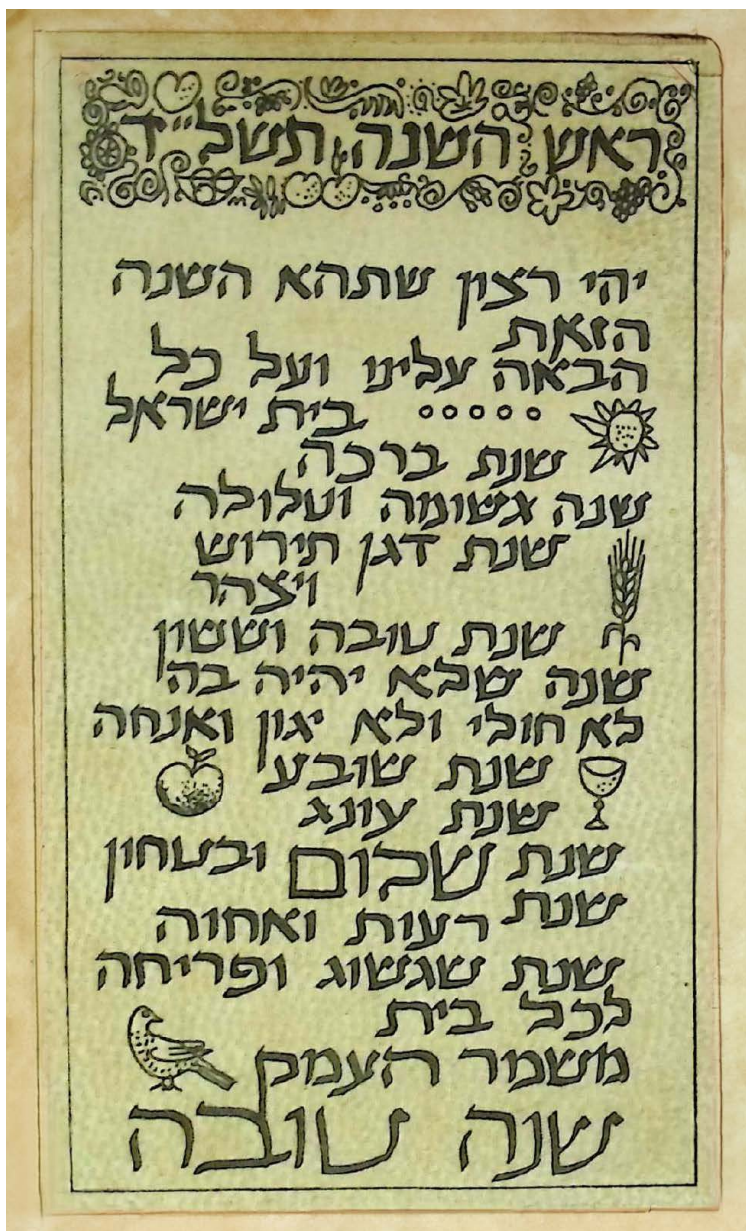 ראש השנה תשל"ד
יהי רצון שתהא השנה
הזאת
הבאה עלינו ועל כל
בית ישראל
שנת ברכה
שנה גשומה וטלולה
שנת דגן תירוש
ויצהר
שנת טובה וששון
שנה שלא יהיה בה
לא חולי ולא יגון ואנחה
שנת שובע
שנת עונג
שנת שלום ובטחון
שנת רעות ואחוה
שנת שגשוג ופריחה
לכל בית
משמר העמק
שנה טובה